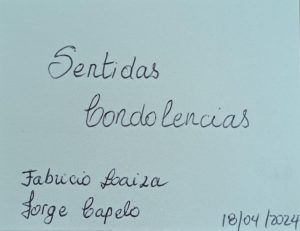 Sentidas
Condolencias
Fabricio Loaiza
Jorge Capelo
18/04/2024